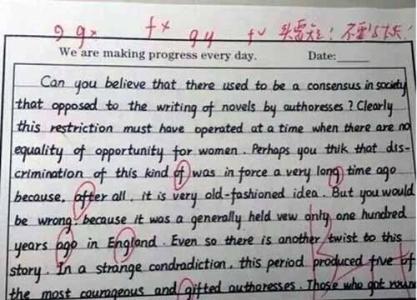 g gx fx gy fv 头雷短: 不要写太长
We are making progress every day. Date:
Can you believe that there used to be a consensus in society
that opposed to the writing of novels by authoresses? Clearly
this restriction must have operated at a time when there are no
equality of opportunity for women. Perhaps you thik that dis-
crimination of this kind of was in force a very long time ago
because, after all, it is very old-fashioned idea. But you would
be wrong because it was a generally held vew only one hundred
years ago in England. Even so there is another twist to this
story. In a strange condradiction, this period produced five of
the most courageous and gifted authoresses. Those who got